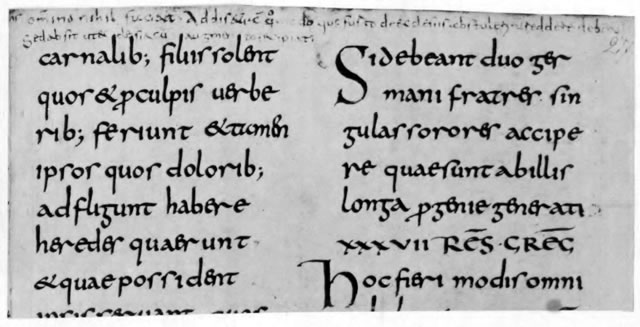 omnino nihil faciat. Addis
carnalib; filiis solent
quos & ꝓculpis uerbe
rib; feriunt & tamen
ipsos quos dolorib;
adfligunt habere
heredes quaerunt
& quae possident
Si debeant duo ger
mani fratres sin
gulas sorores accipe
re quae sunt ab illis
longa ꝓgenie generati
XXXVII RES̄· GREḠ
Hoc fieri modis omni